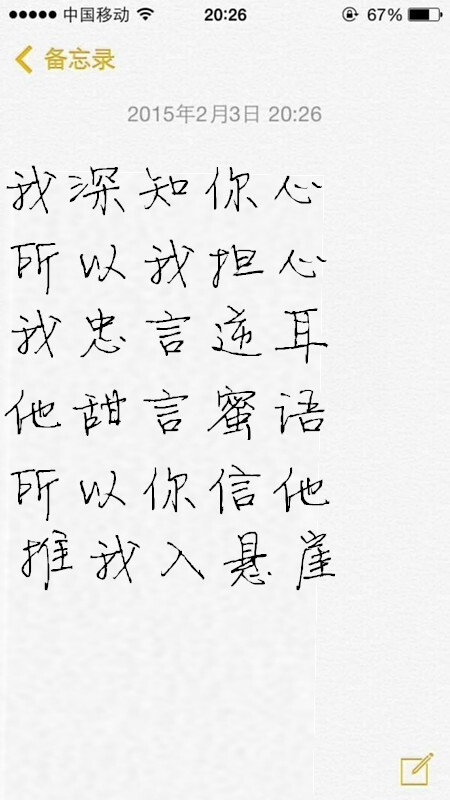 中国移动 20:26 67%
备忘录
2015年2月3日 20:26
我深知你心
所以我担心
我忠言逆耳
他甜言蜜语
所以你信他
推我入悬崖